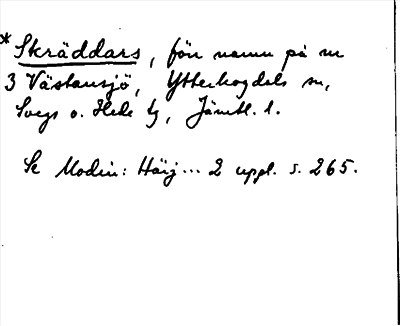 * Skräddars, förr namn på nr
3 Västansjö, Ytterhogdals sn,
Svegs o. Hede tg, Jämtl. l.
Se Modin: Härj... 2 uppl. s. 265.